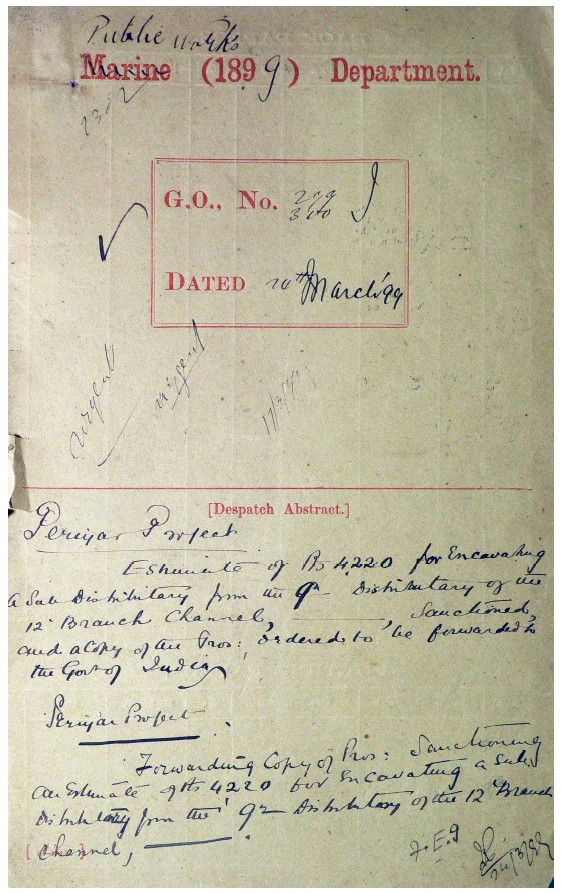 Public Works
Marine (1899) Department.
G.O., No. 299
300 I
DATED 24th March '99
urgent
urgent
17/3/99
[Despatch Abstract.]
Periyar Project
Estimate of Rs 4220 for Excavating
a Sub Distributary from the 9th Distributary of the
12th Branch Channel, Sanctioned,
and a Copy of the Pros: ordered to be forwarded to
the Govt of India
Periyar Project
Forwarding Copy of Pros: Sanctioning
an Estimate of Rs 4220 for Excavating a Sub
Distributary from the 9th Distributary of the 12th Branch
Channel,
24/3/99